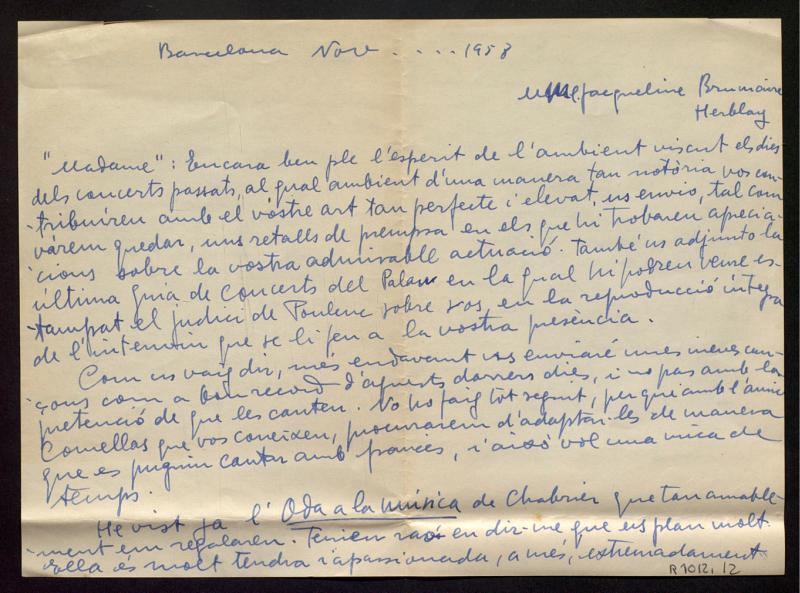 Barcelona Nov .... 1958
Mme Jacqueline Brumaire
Herblay
"Madame": Encara ben ple l'esperit de l'ambient viscut els dies
dels concerts passats, al qual ambient d'una manera tan notòria vos con-
-tribuíren amb el vostre art tan perfecte i elevat, us envio, tal com
vàrem quedar, uns retalls de prempsa en els que hi trobaren aprecia-
cions sobre la vostra admirable actuació. També us adjunto la
última guia de concerts del Palau en la qual hi podren veure es-
-tampat el judici de Poulenc sobre vos, en la reproducció íntegra
de l'interviu que se li feu a la vostra presència.
Com us vaig dir, més endavant us enviaré unes meves can-
çons com a bon record d'aquests darrers dies, i no pas amb la
pretenció de que les canten. No ho faig tot seguit, perquè amb l'amic
Comellas que vos coneixen, procurarem d'adaptar-les de manera
que es puguin cantar amb francès, i això vol una mica de
temps.
He vist ja l'Oda a la música de Chabrier que tan amable-
-ment em regalaren. Tenien raó en dir-me que es plau molt.
Ella és molt tendra i apassionada, a més, extremadament
R 1012, /2